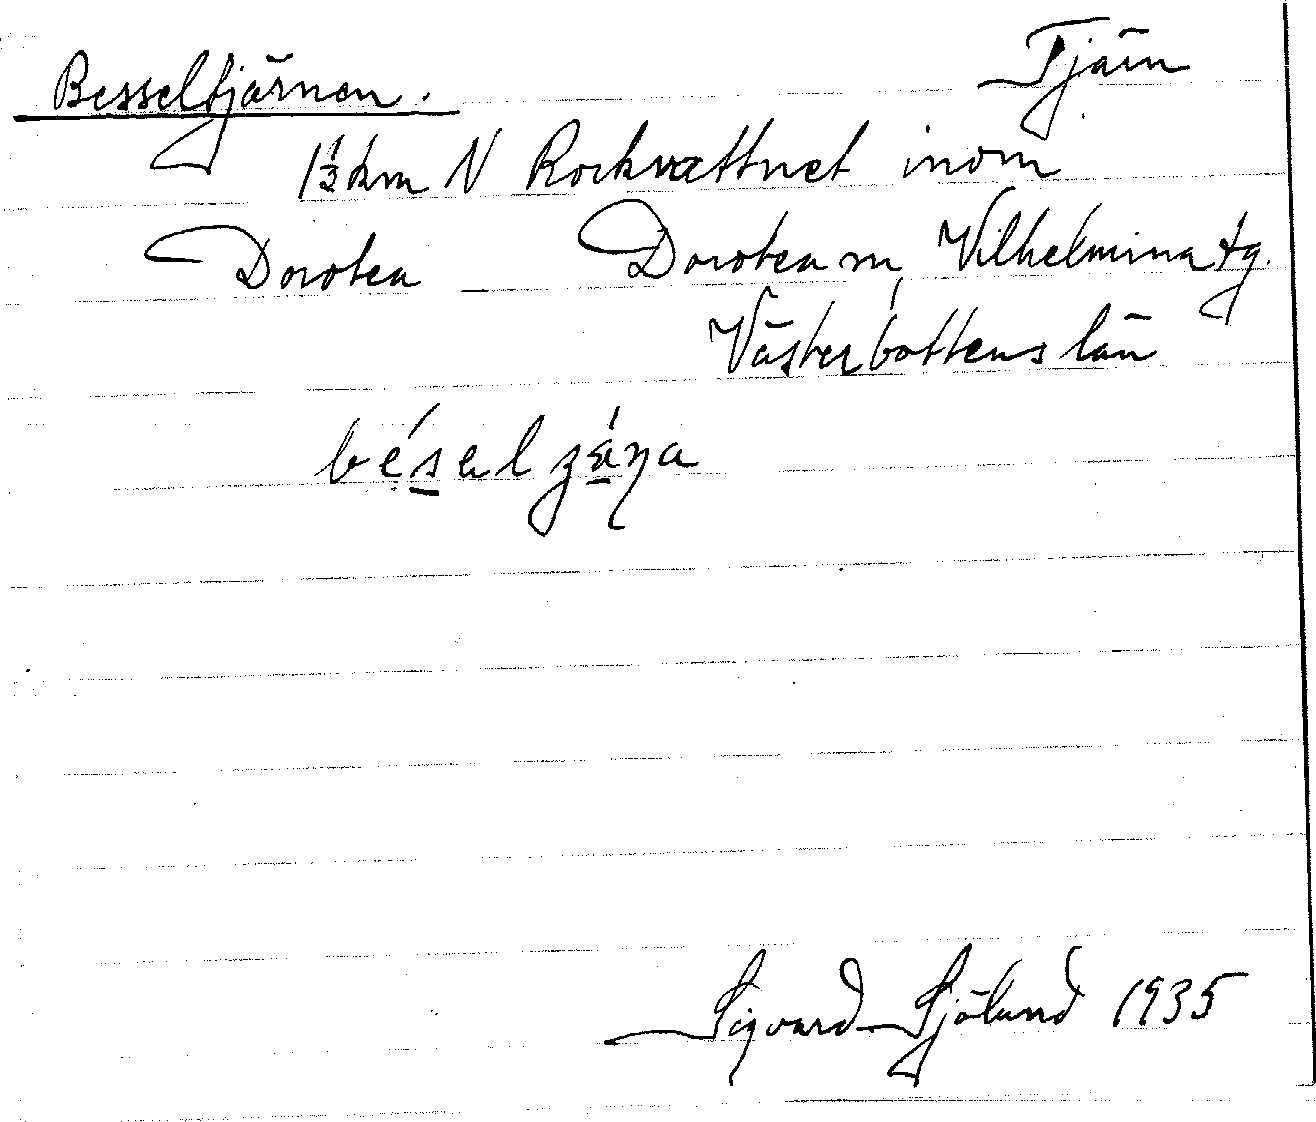 Besseltjärnen. Tjärn
1½ km N Rockvattnet inom
Dorotea Dorotea m, Vilhelmina tg.
Västerbottens län
Sigvard Sjölund 1935